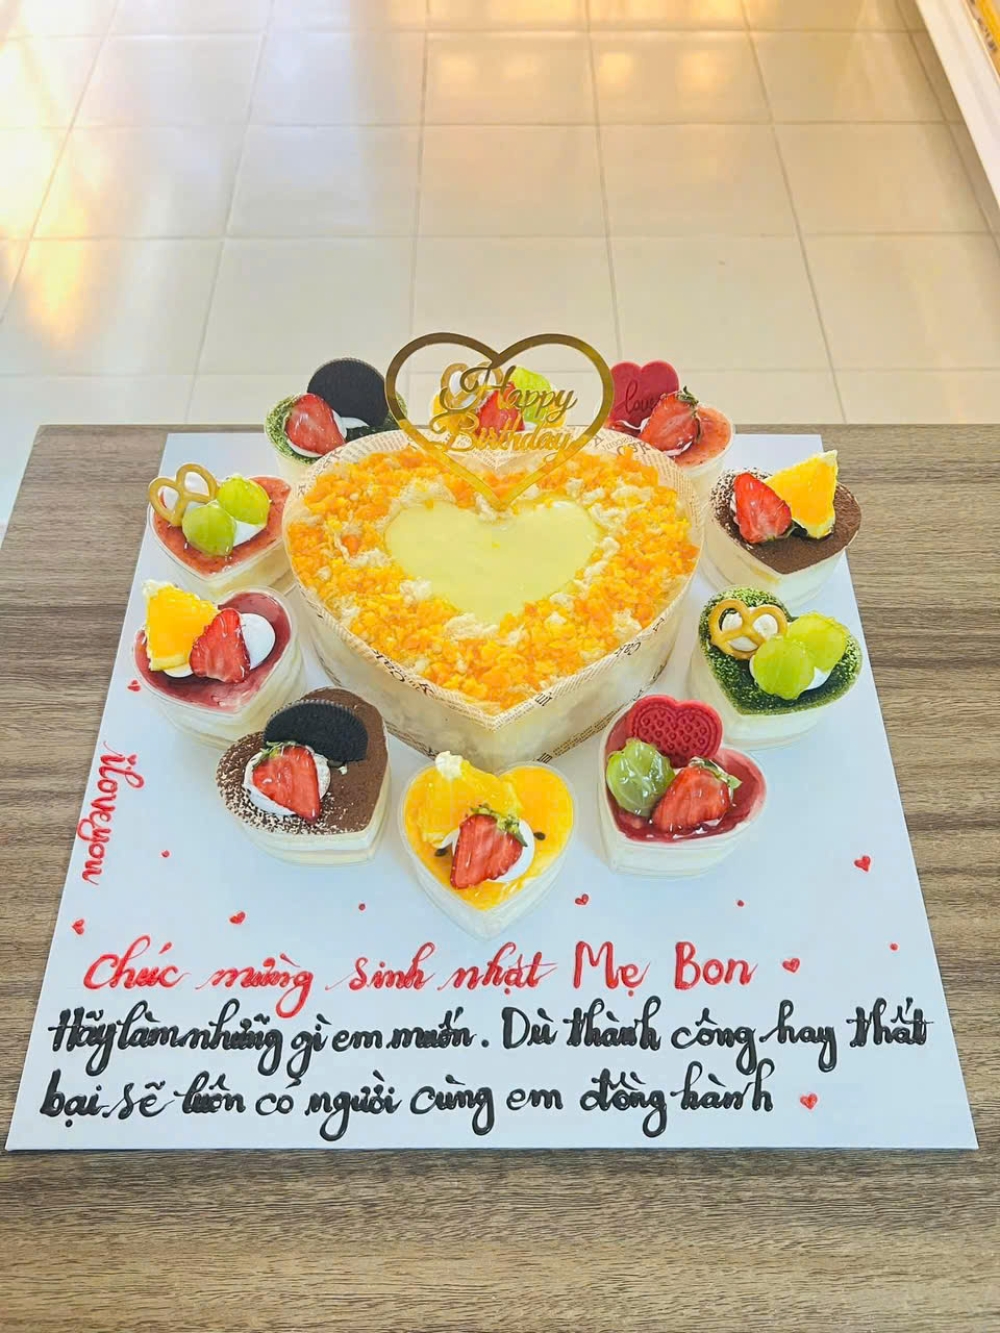 Happy
Birthday
love
iloveyou
Chúc mừng sinh nhật Mẹ Bon
Hãy làm những gì em muốn. Dù thành công hay thất
bại sẽ luôn có người cùng em đồng hành